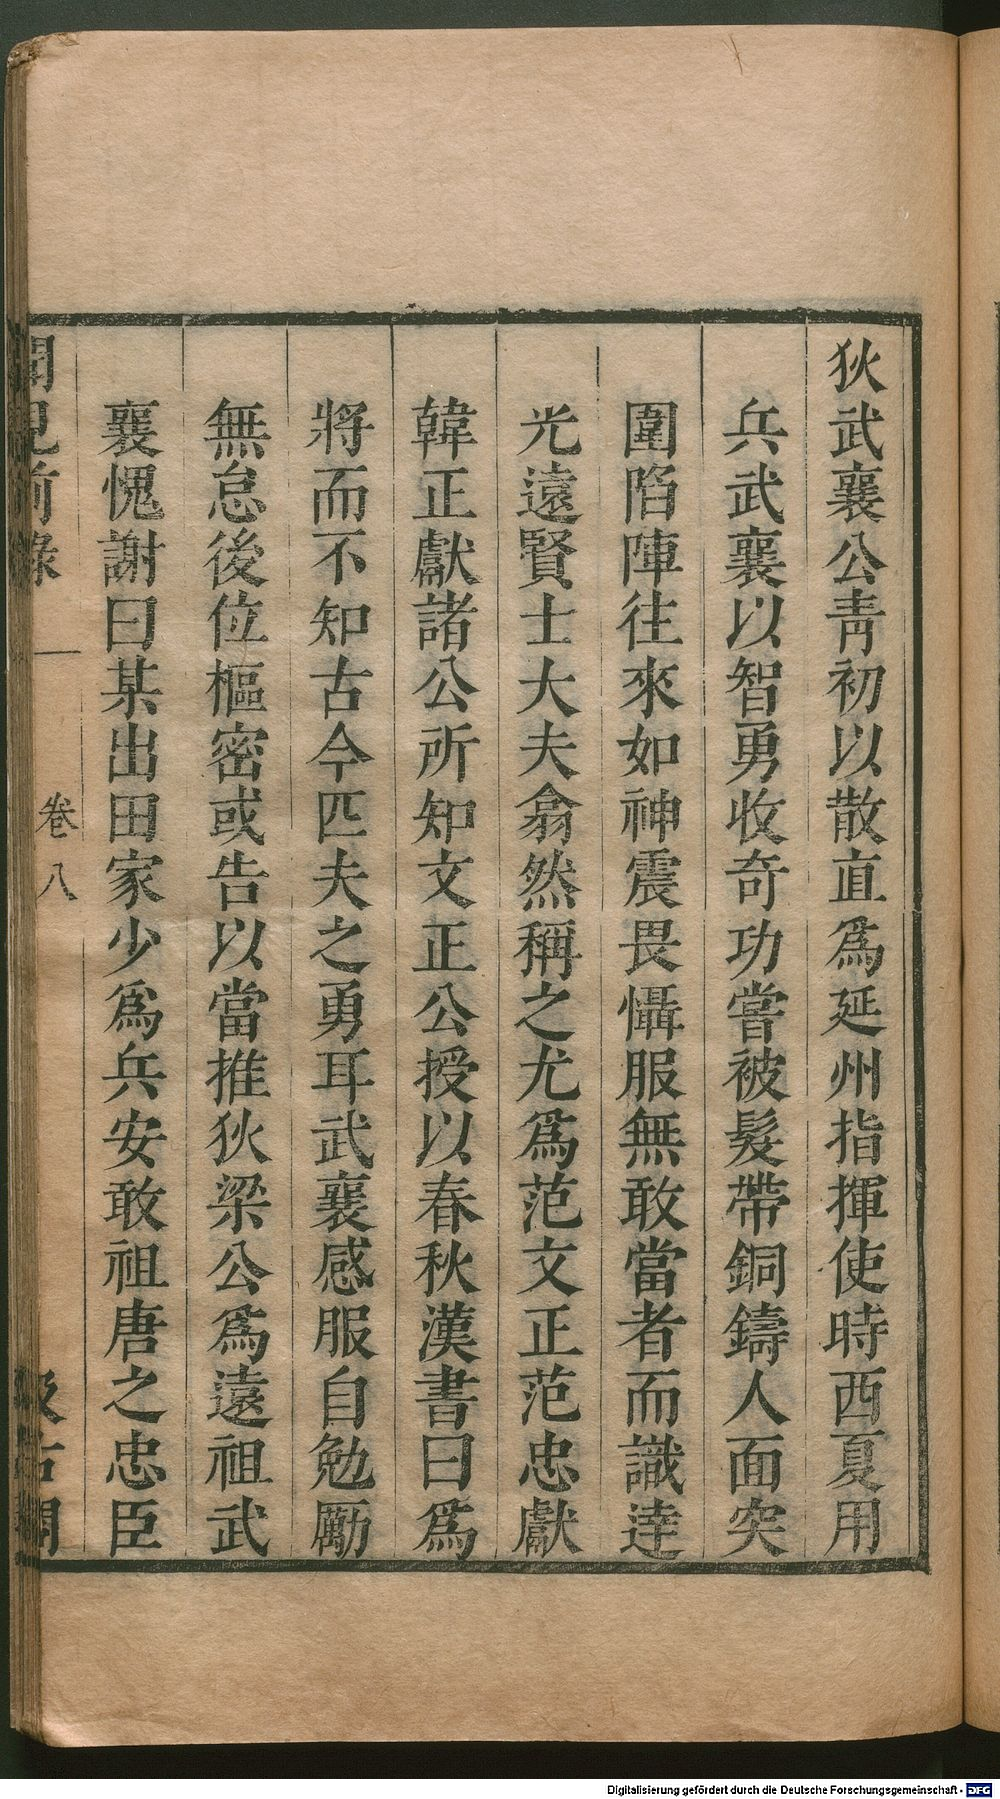 狄武襄公靑初以散直爲延州指揮使時西夏用
兵武襄以智勇收奇功嘗被髮帶銅鑄人面突
圍陷陣往來如神震畏懾服無敢當者而識逹
光遠賢士大夫翕然稱之尤爲范文正范忠獻
韓正獻諸公所知文正公授以春秋漢書曰爲
將而不知古今匹夫之勇耳武襄感服自勉勵
無怠後位樞密或告以當推狄梁公爲遠祖武
襄愧謝曰某出田家少爲兵安敢祖唐之忠臣
聞見前錄 卷八 汲古閣
Digitalisierung gefördert durch die Deutsche Forschungsgemeinschaft - DFG